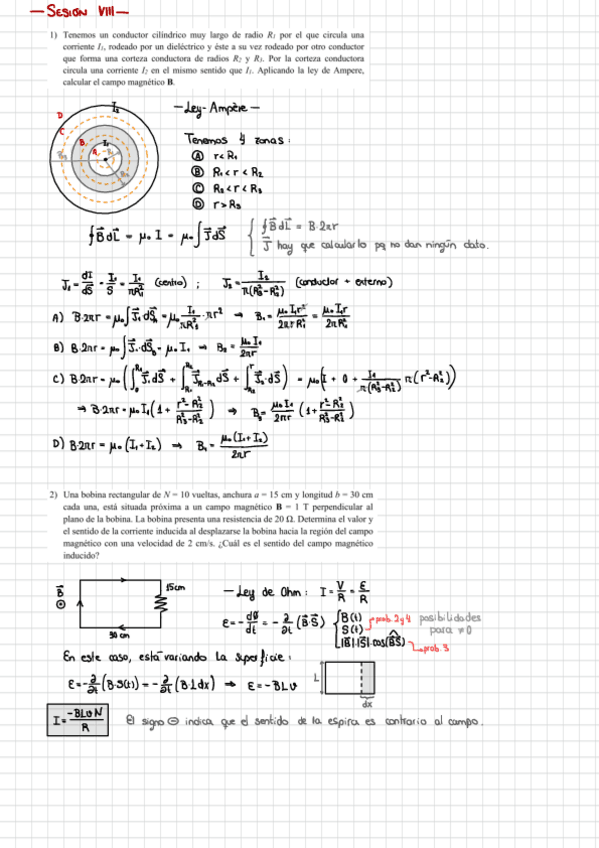 — SESIÓN VIII —
1) Tenemos un conductor cilíndrico muy largo de radio R₁ por el que circula una
corriente I₁, rodeado por un dieléctrico y éste a su vez rodeado por otro conductor
que forma una corteza conductora de radios R₂ y R₃. Por la corteza conductora
circula una corriente I₂ en el mismo sentido que I₁. Aplicando la ley de Ampere,
calcular el campo magnético B.
— Ley-Ampère —
Tenemos 4 zonas:
Ⓐ r < R₁
Ⓑ R₁ < r < R₂
Ⓒ R₂ < r < R₃
Ⓓ r > R₃
D
C
B
A
∮B⃗dL⃗ = μ₀ I = μ₀∫J⃗dS⃗ { ∮B⃗dL⃗ = B·2πr
J⃗ hay que calcularlo pq no dan ningún dato.
J₁ = dI/dS = I₁/S = I₁/πR₁² (centro) ; J₂ = I₂/π(R₃²-R₂²) (conductor + externo)
A) B·2πr = μ₀∫J⃗₁dS⃗ = μ₀ I₁/πR₁² · πr² → B₁ = μ₀I₁r²/2πrR₁² = μ₀I₁r/2πR₁²
B) B·2πr = μ₀∫J⃗₁·dS⃗ = μ₀I₁ → B₂ = μ₀I₁/2πr
D) B·2πr = μ₀(I₁+I₂) → B₄ = μ₀(I₁+I₂)/2πr
2) Una bobina rectangular de N = 10 vueltas, anchura a = 15 cm y longitud b = 30 cm
cada una, está situada próxima a un campo magnético B = 1 T perpendicular al
plano de la bobina. La bobina presenta una resistencia de 20 Ω. Determina el valor y
el sentido de la corriente inducida al desplazarse la bobina hacia la región del campo
magnético con una velocidad de 2 cm/s. ¿Cuál es el sentido del campo magnético
inducido?
B⃗
15cm
30 cm
— Ley de Ohm: I = V/R = ε/R
ε = -dØ/dt = -∂/∂t (B⃗·S⃗) { B(t)
S(t)
|B⃗|·|S⃗|·cos(BS)
prob. 2 y 4
prob. 3
posibilidades
para ≠ 0
En este caso, está variando la superficie:
ε = -∂/∂t (B·S(t)) = -∂/∂t (B·L dx) → ε = -BLv
L
dx
I = -BLvN/R
El signo ⊖ indica que el sentido de la espira es contrario al campo.